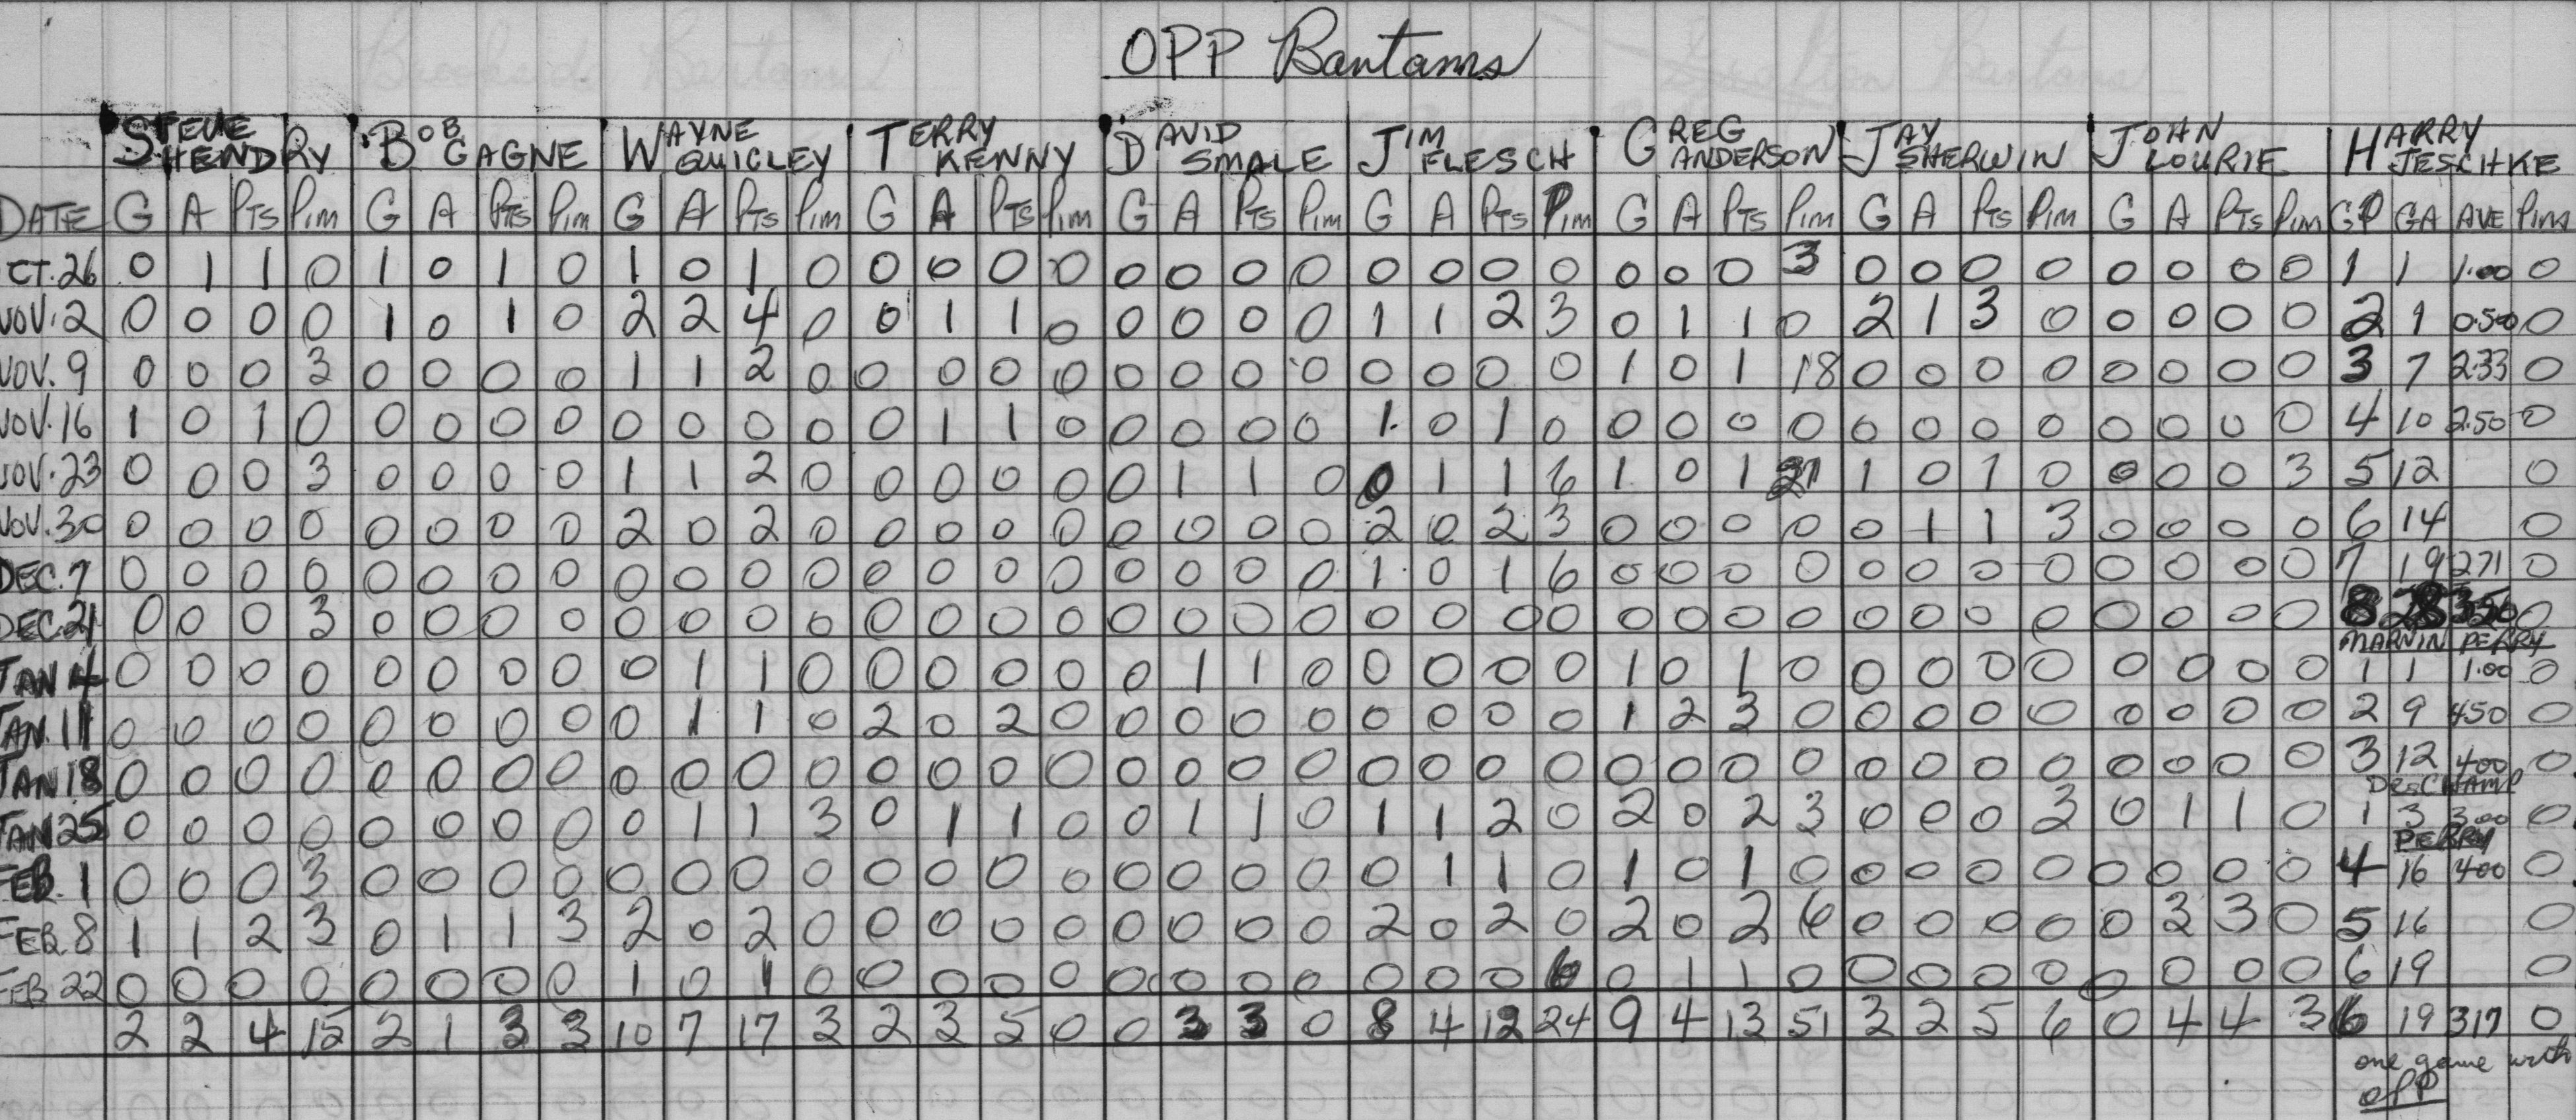 OPP Bantams
STEVE HENDRY BOB GAGNE WAYNE QUIGLEY TERRY KENNY DAVID SMALE JIM FLESCH GREG ANDERSON JAY SHERWIN JOHN LOURIE HARRY JESCHKE
DATE G A PTS PIM G A PTS PIM G A PTS PIM G A PTS PIM G A PTS PIM G A PTS PIM G A PTS PIM G A PTS PIM G A PTS PIM GP GA AVE PIM
CT. 26 0 1 1 0 1 0 1 0 1 0 1 0 0 0 0 0 0 0 0 0 0 0 0 0 0 0 0 3 0 0 0 0 0 0 0 0 1 1 1.00 0
NOV. 2 0 0 0 0 1 0 1 0 2 2 4 0 0 1 1 0 0 0 0 0 1 1 2 3 0 1 1 0 2 1 3 0 0 0 0 0 2 1 0.50 0
NOV. 9 0 0 0 3 0 0 0 0 1 1 2 0 0 0 0 0 0 0 0 0 0 0 0 0 1 0 1 18 0 0 0 0 0 0 0 0 3 7 2.33 0
NOV. 16 1 0 1 0 0 0 0 0 0 0 0 0 0 1 1 0 0 0 0 0 1 0 1 0 0 0 0 0 0 0 0 0 0 0 0 0 4 10 2.50 0
NOV. 23 0 0 0 3 0 0 0 0 1 1 2 0 0 0 0 0 0 1 1 0 0 1 1 6 1 0 1 21 1 0 1 0 0 0 0 3 5 12 0
NOV. 30 0 0 0 0 0 0 0 0 2 0 2 0 0 0 0 0 0 0 0 0 2 0 2 3 0 0 0 0 0 1 1 3 0 0 0 0 6 14 0
DEC. 7 0 0 0 0 0 0 0 0 0 0 0 0 0 0 0 0 0 0 0 0 1 0 1 6 0 0 0 0 0 0 0 0 0 0 0 0 7 19 2.71 0
DEC 21 0 0 0 3 0 0 0 0 0 0 0 0 0 0 0 0 0 0 0 0 0 0 0 0 0 0 0 0 0 0 0 0 0 0 0 0 8 28 3.50 0
MARVIN PERRY
JAN 4 0 0 0 0 0 0 0 0 0 1 1 0 0 0 0 0 0 1 1 0 0 0 0 0 1 0 1 0 0 0 0 0 0 0 0 0 1 1 1.00 0
JAN. 11 0 0 0 0 0 0 0 0 0 1 1 0 2 0 2 0 0 0 0 0 0 0 0 0 1 2 3 0 0 0 0 0 0 0 0 0 2 9 4.50 0
JAN 18 0 0 0 0 0 0 0 0 0 0 0 0 0 0 0 0 0 0 0 0 0 0 0 0 0 0 0 0 0 0 0 0 0 0 0 0 3 12 4.00 0
DESCHAMP
JAN 25 0 0 0 0 0 0 0 0 0 1 1 3 0 1 1 0 0 1 1 0 1 1 2 0 2 0 2 3 0 0 0 3 0 1 1 0 1 3 3.00 0
PERRY
FEB. 1 0 0 0 3 0 0 0 0 0 0 0 0 0 0 0 0 0 0 0 0 0 1 1 0 1 0 1 0 0 0 0 0 0 0 0 0 4 16 4.00 0
FEB. 8 1 1 2 3 0 1 1 3 2 0 2 0 0 0 0 0 0 0 0 0 2 0 2 0 2 0 2 6 0 0 0 0 0 3 3 0 5 16 0
FEB 22 0 0 0 0 0 0 0 0 1 0 1 0 0 0 0 0 0 0 0 0 0 0 0 6 0 1 1 0 0 0 0 0 0 0 0 0 6 19 0
2 2 4 15 2 1 3 3 10 7 17 3 2 3 5 0 0 3 3 0 8 4 12 24 9 4 13 51 3 2 5 6 0 4 4 3 6 19 3.17 0
one game with
OPP